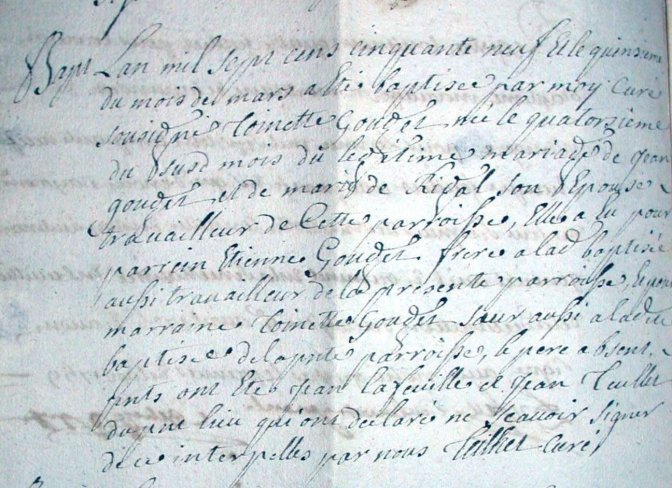 Bapt Lan mil sept cens cinquante neuf et le quinzieme
du mois de mars a esté baptisée par moy curé
sousigné Toinette Goudet née le quatorzieme
du susd mois du legitime mariage de jean
goudet et de marie de Rigal son Epouse
travailleur de Cette parroisse Elle a Eu pour
parrein Etienne Goudet frere a lad baptisée
aussi travailleur de la presente parroisse, et pour
marraine Toinette Goudet sœur aussi a lad
baptisée de la pnte parroisse, le pere absent
pnts ont Eté jean lafeuille et jean
du pnt lieu qui ont declaré ne scavoir signer
de ce interpellés par nous curé